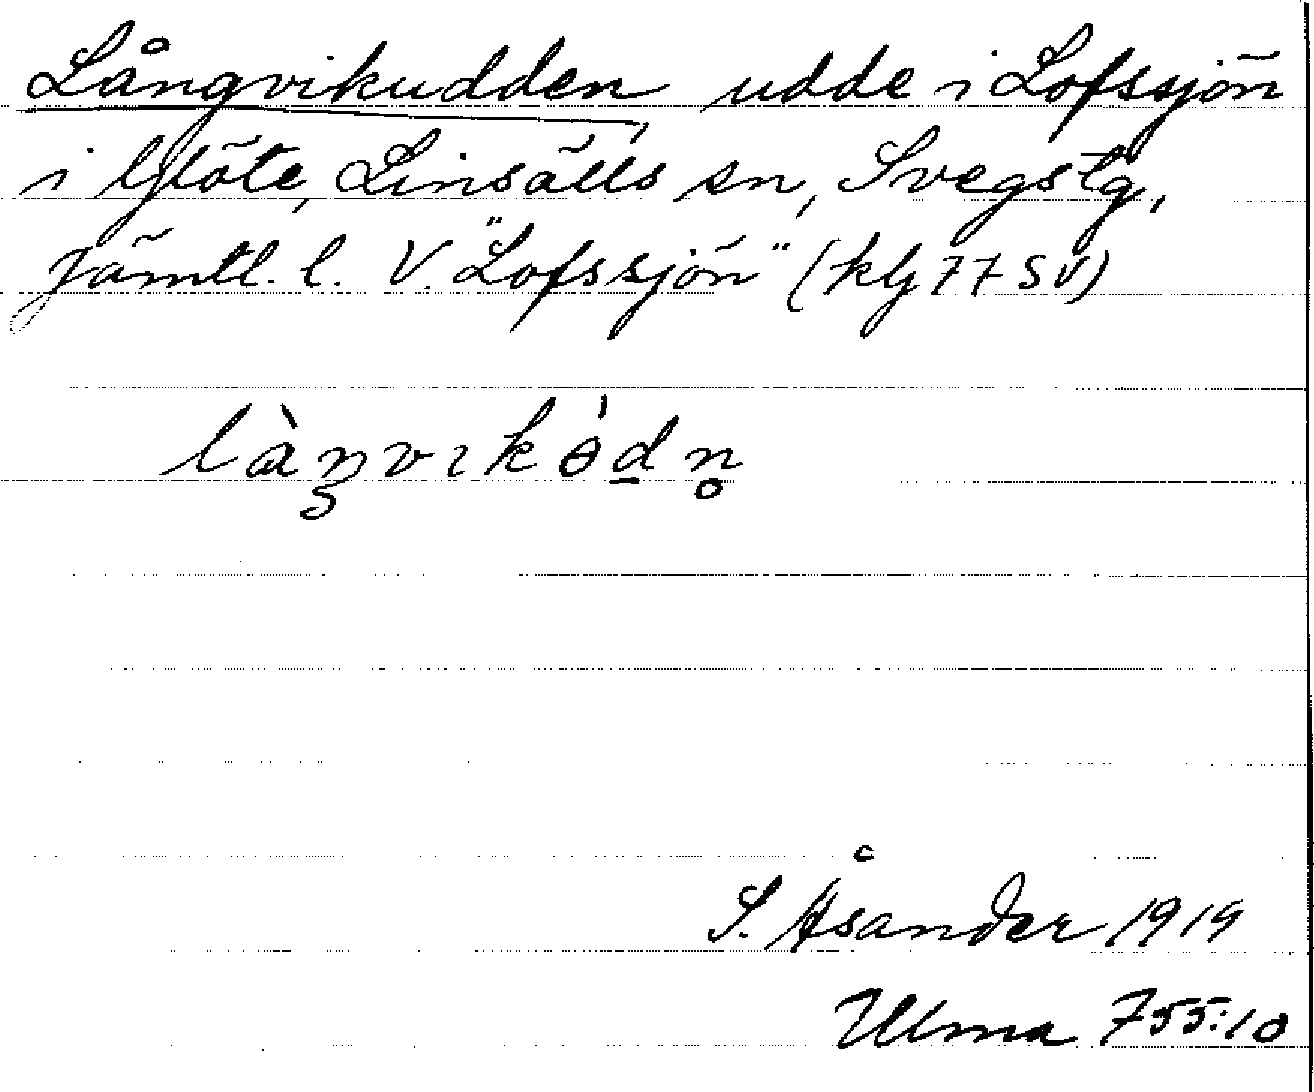 Långvikudden, udde i Lofssjön
i Glöte, Linsälls sn, Svegs tg,
Jämtl. l. V. "Lofssjön" (kbl 77 SV)
S. Åsander 1919
Ulma 755:10